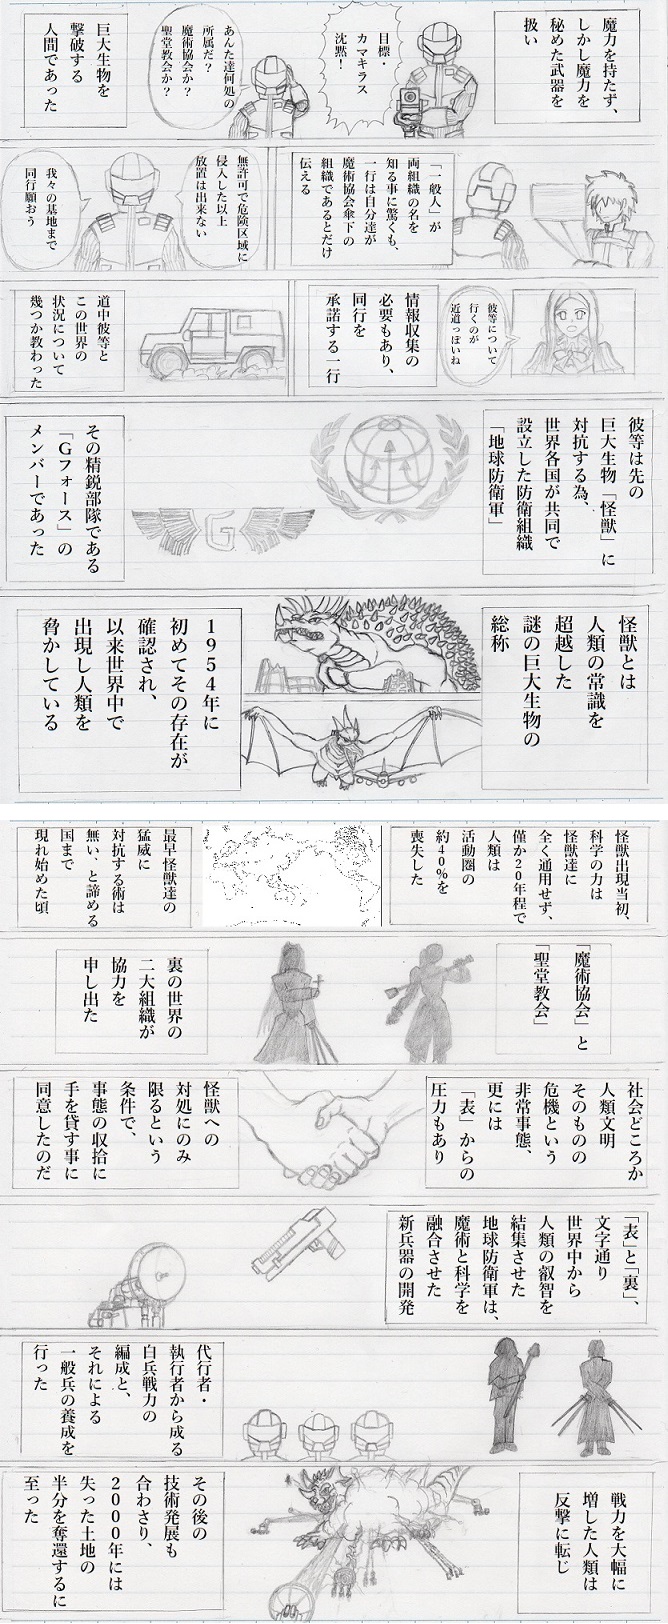 魔力を持たず、
しかし魔力を
秘めた武器を
扱い
目標・
カマキラス
沈黙!
あんた達何処の
所属だ?
魔術協会か?
聖堂教会か?
巨大生物を
撃破する
人間であった
「一般人」が
両組織の名を
知る事に驚くも、
一行は自分達が
魔術協会傘下の
組織であるとだけ
伝える
無許可で危険区域に
侵入した以上
放置は出来ない
我々の基地まで
同行願おう
彼等について
行くのが
近道っぽいね
情報収集の
必要もあり、
同行を
承諾する一行
道中彼等と
この世界の
状況について
幾つか教わった
彼等は先の
巨大生物「怪獣」に
対抗する為、
世界各国が共同で
設立した防衛組織
「地球防衛軍」
G
その精鋭部隊である
「Gフォース」の
メンバーであった
怪獣とは
人類の常識を
超越した
謎の巨大生物の
総称
1954年に
初めてその存在が
確認され、
以来世界中で
出現し人類を
脅かしている
怪獣出現当初、
科学の力は
怪獣達に
全く通用せず、
僅か20年程で
人類は
活動圏の
約40%を
喪失した
最早怪獣達の
猛威に
対抗する術は
無い、と諦める
国まで
現れ始めた頃
「魔術協会」と
「聖堂教会」
裏の世界の
二大組織が
協力を
申し出た
社会どころか
人類文明
そのものの
危機という
非常事態、
更には
「表」からの
圧力もあり
怪獣への
対処にのみ
限るという
条件で、
事態の収拾に
手を貸す事に
同意したのだ
「表」と「裏」、
文字通り
世界中から
人類の叡智を
結集させた
地球防衛軍は、
魔術と科学を
融合させた
新兵器の開発
代行者・
執行者から成る
白兵戦力の
編成と、
それによる
一般兵の養成を
行った
戦力を大幅に
増した人類は
反撃に転じ
その後の
技術発展も
合わさり、
2000年には
失った土地の
半分を奪還するに
至った